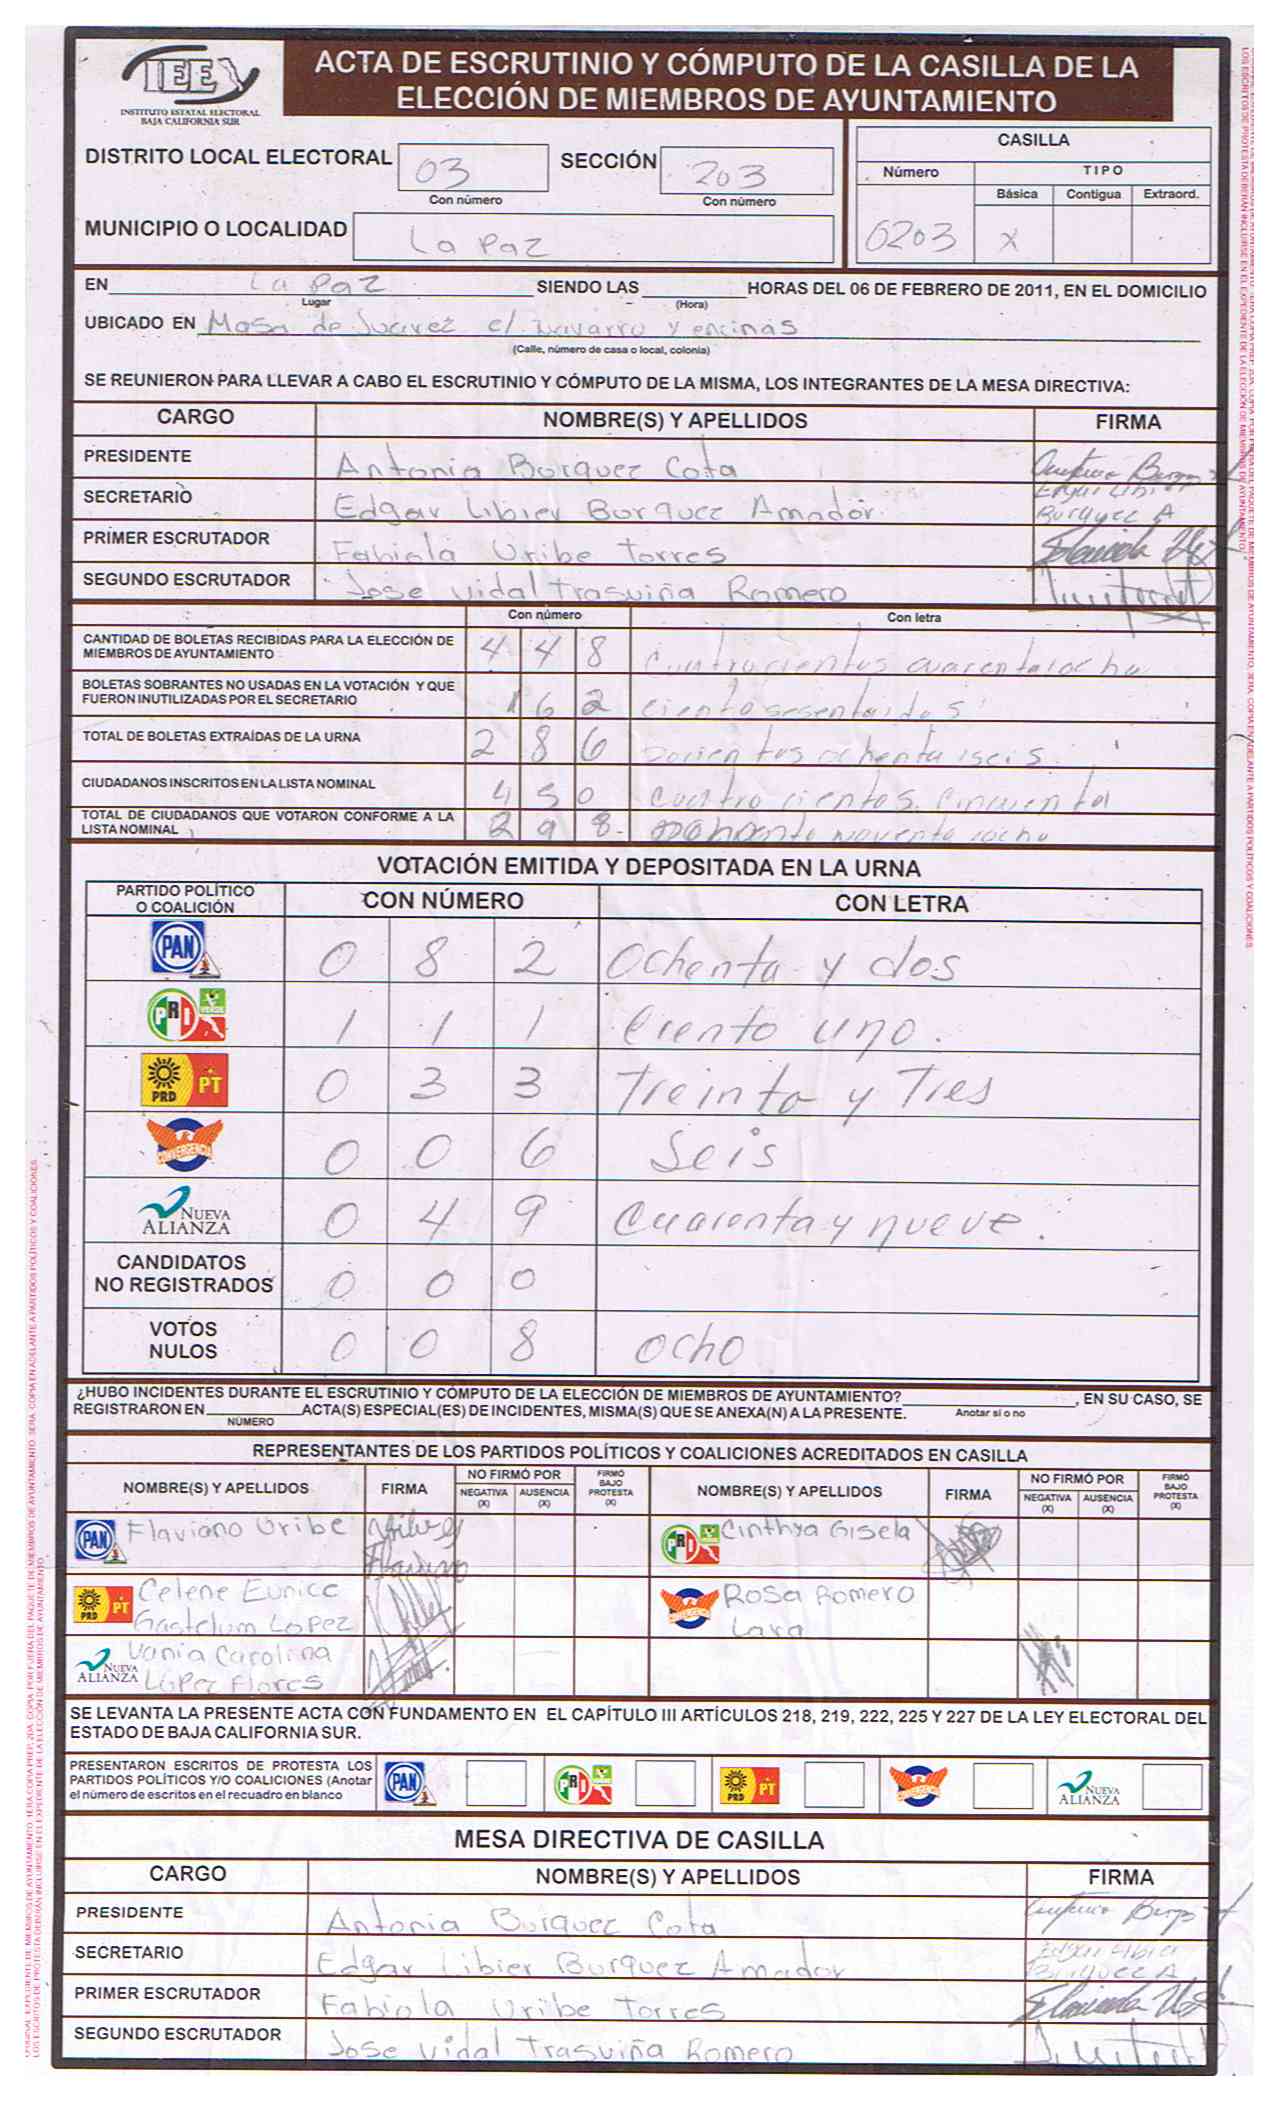 IEEY
INSTITUTO ESTATAL ELECTORAL
BAJA CALIFORNIA SUR
ACTA DE ESCRUTINIO Y CÓMPUTO DE LA CASILLA DE LA
ELECCIÓN DE MIEMBROS DE AYUNTAMIENTO
DISTRITO LOCAL ELECTORAL 03 SECCIÓN 203
Con número Con número
MUNICIPIO O LOCALIDAD La Paz
CASILLA
Número TIPO
Básica Contigua Extraord.
0203 X
EN La Paz SIENDO LAS HORAS DEL 06 DE FEBRERO DE 2011, EN EL DOMICILIO
Lugar (Hora)
UBICADO EN Masa de Juarez e/. Navarro y encinas
(Calle, número de casa o local, colonia)
SE REUNIERON PARA LLEVAR A CABO EL ESCRUTINIO Y CÓMPUTO DE LA MISMA, LOS INTEGRANTES DE LA MESA DIRECTIVA:
CARGO NOMBRE(S) Y APELLIDOS FIRMA
PRESIDENTE Antonia Burquez Cota
SECRETARIO Edgar Libier Burquez Amador Edgar Libier
Burquez A
PRIMER ESCRUTADOR Fabiola Uribe Torres
SEGUNDO ESCRUTADOR Jose Vidal Trasviña Romero
Con número Con letra
CANTIDAD DE BOLETAS RECIBIDAS PARA LA ELECCIÓN DE
MIEMBROS DE AYUNTAMIENTO 4 4 8
BOLETAS SOBRANTES NO USADAS EN LA VOTACIÓN Y QUE
FUERON INUTILIZADAS POR EL SECRETARIO 1 6 2 ciento sesentaidos
TOTAL DE BOLETAS EXTRAÍDAS DE LA URNA 2 8 6
CIUDADANOS INSCRITOS EN LA LISTA NOMINAL 4 5 0 Cuatro cientos Cincuenta
TOTAL DE CIUDADANOS QUE VOTARON CONFORME A LA
LISTA NOMINAL 2 9 8
VOTACIÓN EMITIDA Y DEPOSITADA EN LA URNA
PARTIDO POLÍTICO
O COALICIÓN CON NÚMERO CON LETRA
PAN 0 8 2 Ochenta y dos
PRI VERDE 1 1 1 Ciento uno.
PRD PT 0 3 3 Treinta y Tres
CONVERGENCIA 0 0 6 Seis
NUEVA ALIANZA 0 4 9 Cuarenta y nueve.
CANDIDATOS
NO REGISTRADOS 0 0 0
VOTOS
NULOS 0 0 8 ocho
¿HUBO INCIDENTES DURANTE EL ESCRUTINIO Y CÓMPUTO DE LA ELECCIÓN DE MIEMBROS DE AYUNTAMIENTO? , EN SU CASO, SE
REGISTRARON EN ACTA(S) ESPECIAL(ES) DE INCIDENTES, MISMA(S) QUE SE ANEXA(N) A LA PRESENTE. Anotar sí o no
NÚMERO
REPRESENTANTES DE LOS PARTIDOS POLÍTICOS Y COALICIONES ACREDITADOS EN CASILLA
NOMBRE(S) Y APELLIDOS FIRMA NO FIRMÓ POR NEGATIVA (X) AUSENCIA (X) FIRMÓ BAJO PROTESTA (X) NOMBRE(S) Y APELLIDOS FIRMA NO FIRMÓ POR NEGATIVA (X) AUSENCIA (X) FIRMÓ BAJO PROTESTA (X)
PAN Flaviano Uribe PRI VERDE Cinthya Gisela
PRD PT Celene Eunice
Gastelum Lopez
CONVERGENCIA Rosa Romero
Lara
NUEVA ALIANZA Vania Carolina
López Flores
SE LEVANTA LA PRESENTE ACTA CON FUNDAMENTO EN EL CAPÍTULO III ARTÍCULOS 218, 219, 222, 225 Y 227 DE LA LEY ELECTORAL DEL
ESTADO DE BAJA CALIFORNIA SUR.
PRESENTARON ESCRITOS DE PROTESTA LOS
PARTIDOS POLÍTICOS Y/O COALICIONES (Anotar
el número de escritos en el recuadro en blanco
PAN PRI VERDE PRD PT CONVERGENCIA NUEVA ALIANZA
MESA DIRECTIVA DE CASILLA
CARGO NOMBRE(S) Y APELLIDOS FIRMA
PRESIDENTE Antonia Burquez Cota
SECRETARIO Edgar Libier Burquez Amador Edgar Libier
Burquez A
PRIMER ESCRUTADOR Fabiola Uribe Torres
SEGUNDO ESCRUTADOR Jose Vidal Trasviña Romero